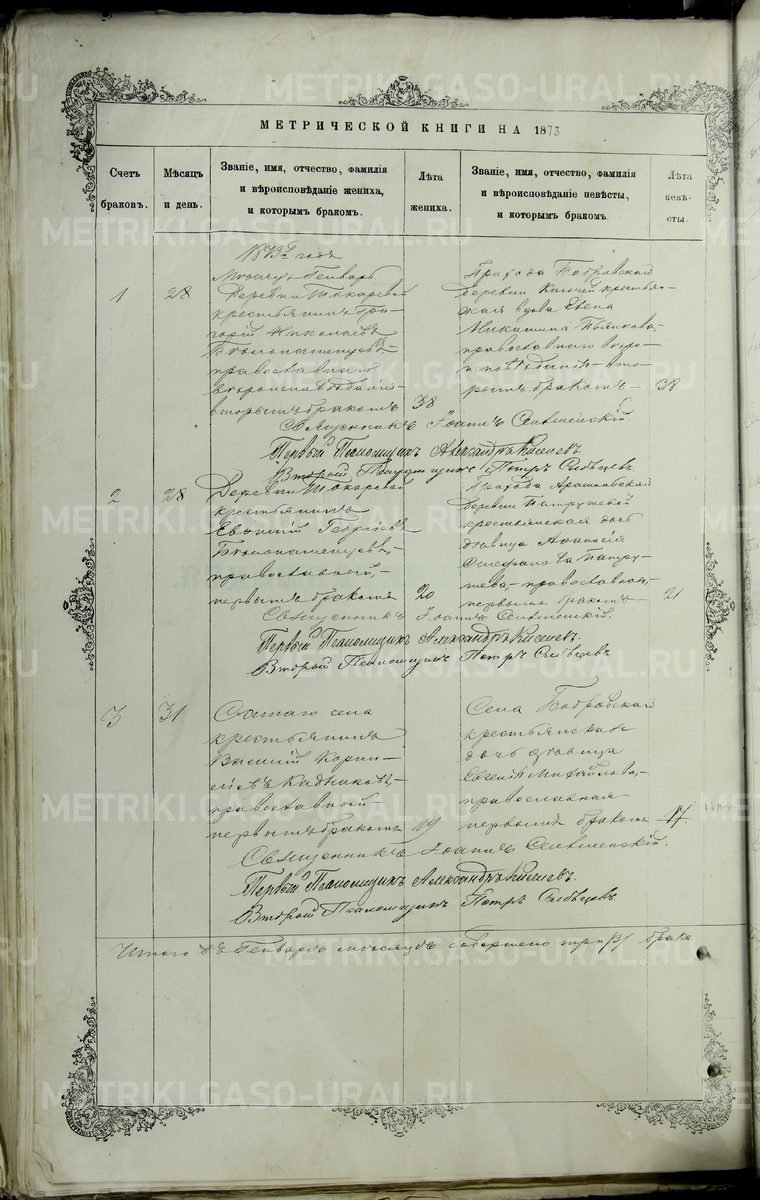 МЕТРИЧЕСКОЙ КНИГИ НА 1873
Счетъ браковъ.
Мѣсяцъ и день.
Званіе, имя, отчество, фамилія
и вѣроисповѣданіе жениха,
и которымъ бракомъ.
Лѣта
жениха.
Званіе, имя, отчество, фамилія
и вѣроисповѣданіе невѣсты,
и которымъ бракомъ.
Лѣта
невѣ-
сты.
1873 годъ
Мѣсяцъ Генварь
1
28
Деревни Токаревой
крестьянинъ Гри-
горій Николаевъ
православнаго
вѣроисповѣданія
вторымъ бракомъ
38
Прихода Бобровскаго
деревни крестьян-
ская вдова Елена
Никитина
православнаго вѣро-
исповѣданія вто-
рымъ бракомъ
38
Священникъ Іоаннъ
Первый Псаломщикъ Александръ Киселевъ.
Второй Псаломщикъ Петръ
2
28
Деревни Токаревой
крестьянинъ
Евѳимій Георгіевъ
православный,
первымъ бракомъ
20
Прихода Арамиловскаго
деревни Патрушевой
крестьянская дочь
дѣвица Аѳанасія
Патру-
шева, православная,
первымъ бракомъ
21
Священникъ Іоаннъ
Первый Псаломщикъ Александръ Киселевъ.
Второй Псаломщикъ Петръ
3
31
села
крестьянинъ
Василій Корни-
ліевъ Кадниковъ,
православный
первымъ бракомъ
19
Села Бобровскаго
крестьянская
дочь дѣвица
Евгенія Михайлова,
православная
первымъ бракомъ
17
Священникъ Іоаннъ
Первый Псаломщикъ Александръ Киселевъ.
Второй Псаломщикъ Петръ
Итого въ Генварѣ мѣсяцѣ совершено три /3/ брака
METRIKI.GASO-URAL.RU